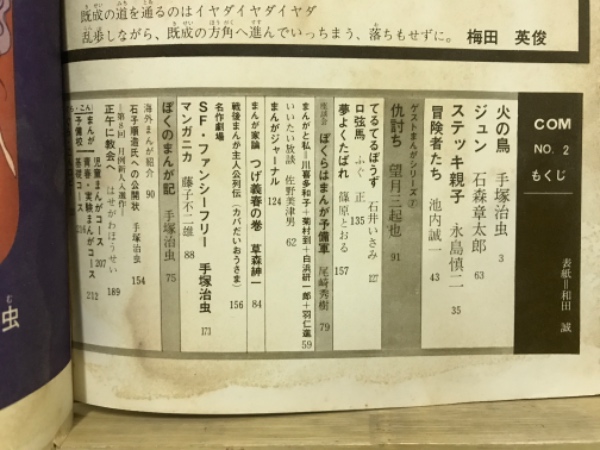 既成の道を通るのはイヤダイヤダイヤダ
乱歩しながら、既成の方角へ進んでいっちまう、落ちもせずに。 梅田 英俊
COM
NO. 2
もくじ
表紙=和田 誠
火の鳥 手塚治虫 3
ジュン 石森章太郎 63
ステッキ親子 永島慎二 35
冒険者たち 池内誠一 43
ゲストまんがシリーズ②
仇討ち 望月三起也 91
てるてるぼうず 石井いさみ 127
ロ弦馬 ふぐ 正 135
夢よくたばれ 篠原とおる 157
座談会 ぼくらはまんが予備軍 尾崎秀樹 79
まんがと私=川喜多和子+菊村到+白浜研一郎+羽仁進 59
いいたい放談 佐野美津男 62
まんがジャーナル 124
まんが家論 つげ義春の巻 草森紳一 84
戦後まんが主人公列伝(カバだいおうさま) 156
名作劇場
SF・ファンシーフリー 手塚治虫 171
マンガニカ 藤子不二雄 88
ぼくのまんが記 手塚治虫 75
海外まんが紹介 90
石子順造氏への公開状 手塚治虫 154
―第8回 月例新人入選作―
正午に教会へ はせがわほうせい 189
まんが予備校
児童まんがコース 207
青春・実験まんがコース 212
基礎コース 216
虫